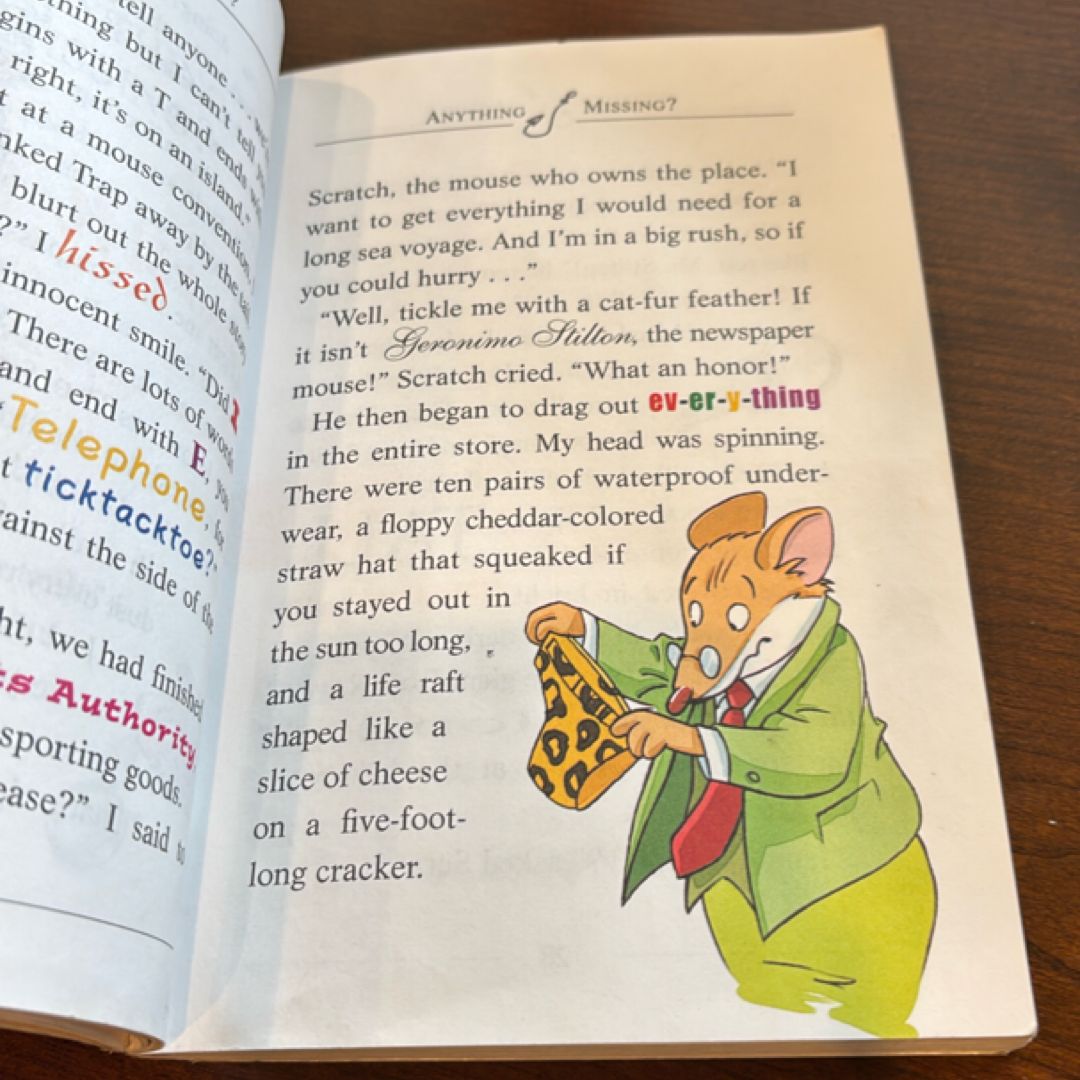 tell anyone . . .
thing but I can't tell
gins with a T and ends
right, it's on an island."
t at a mouse convention,
nked Trap away by the tail
blurt out the whole story
?" I hissed.
innocent smile. "Did I
There are lots of words
and end with E, you
"Telephone, for
t ticktacktoe?"
ainst the side of the
ht, we had finished
ts Authority,
sporting goods.
ease?" I said to
ANYTHING MISSING?
Scratch, the mouse who owns the place. "I
want to get everything I would need for a
long sea voyage. And I'm in a big rush, so if
you could hurry . . ."
"Well, tickle me with a cat-fur feather! If
it isn't Geronimo Stilton, the newspaper
mouse!" Scratch cried. "What an honor!"
He then began to drag out ev-er-y-thing
in the entire store. My head was spinning.
There were ten pairs of waterproof under-
wear, a floppy cheddar-colored
straw hat that squeaked if
you stayed out in
the sun too long,
and a life raft
shaped like a
slice of cheese
on a five-foot-
long cracker.